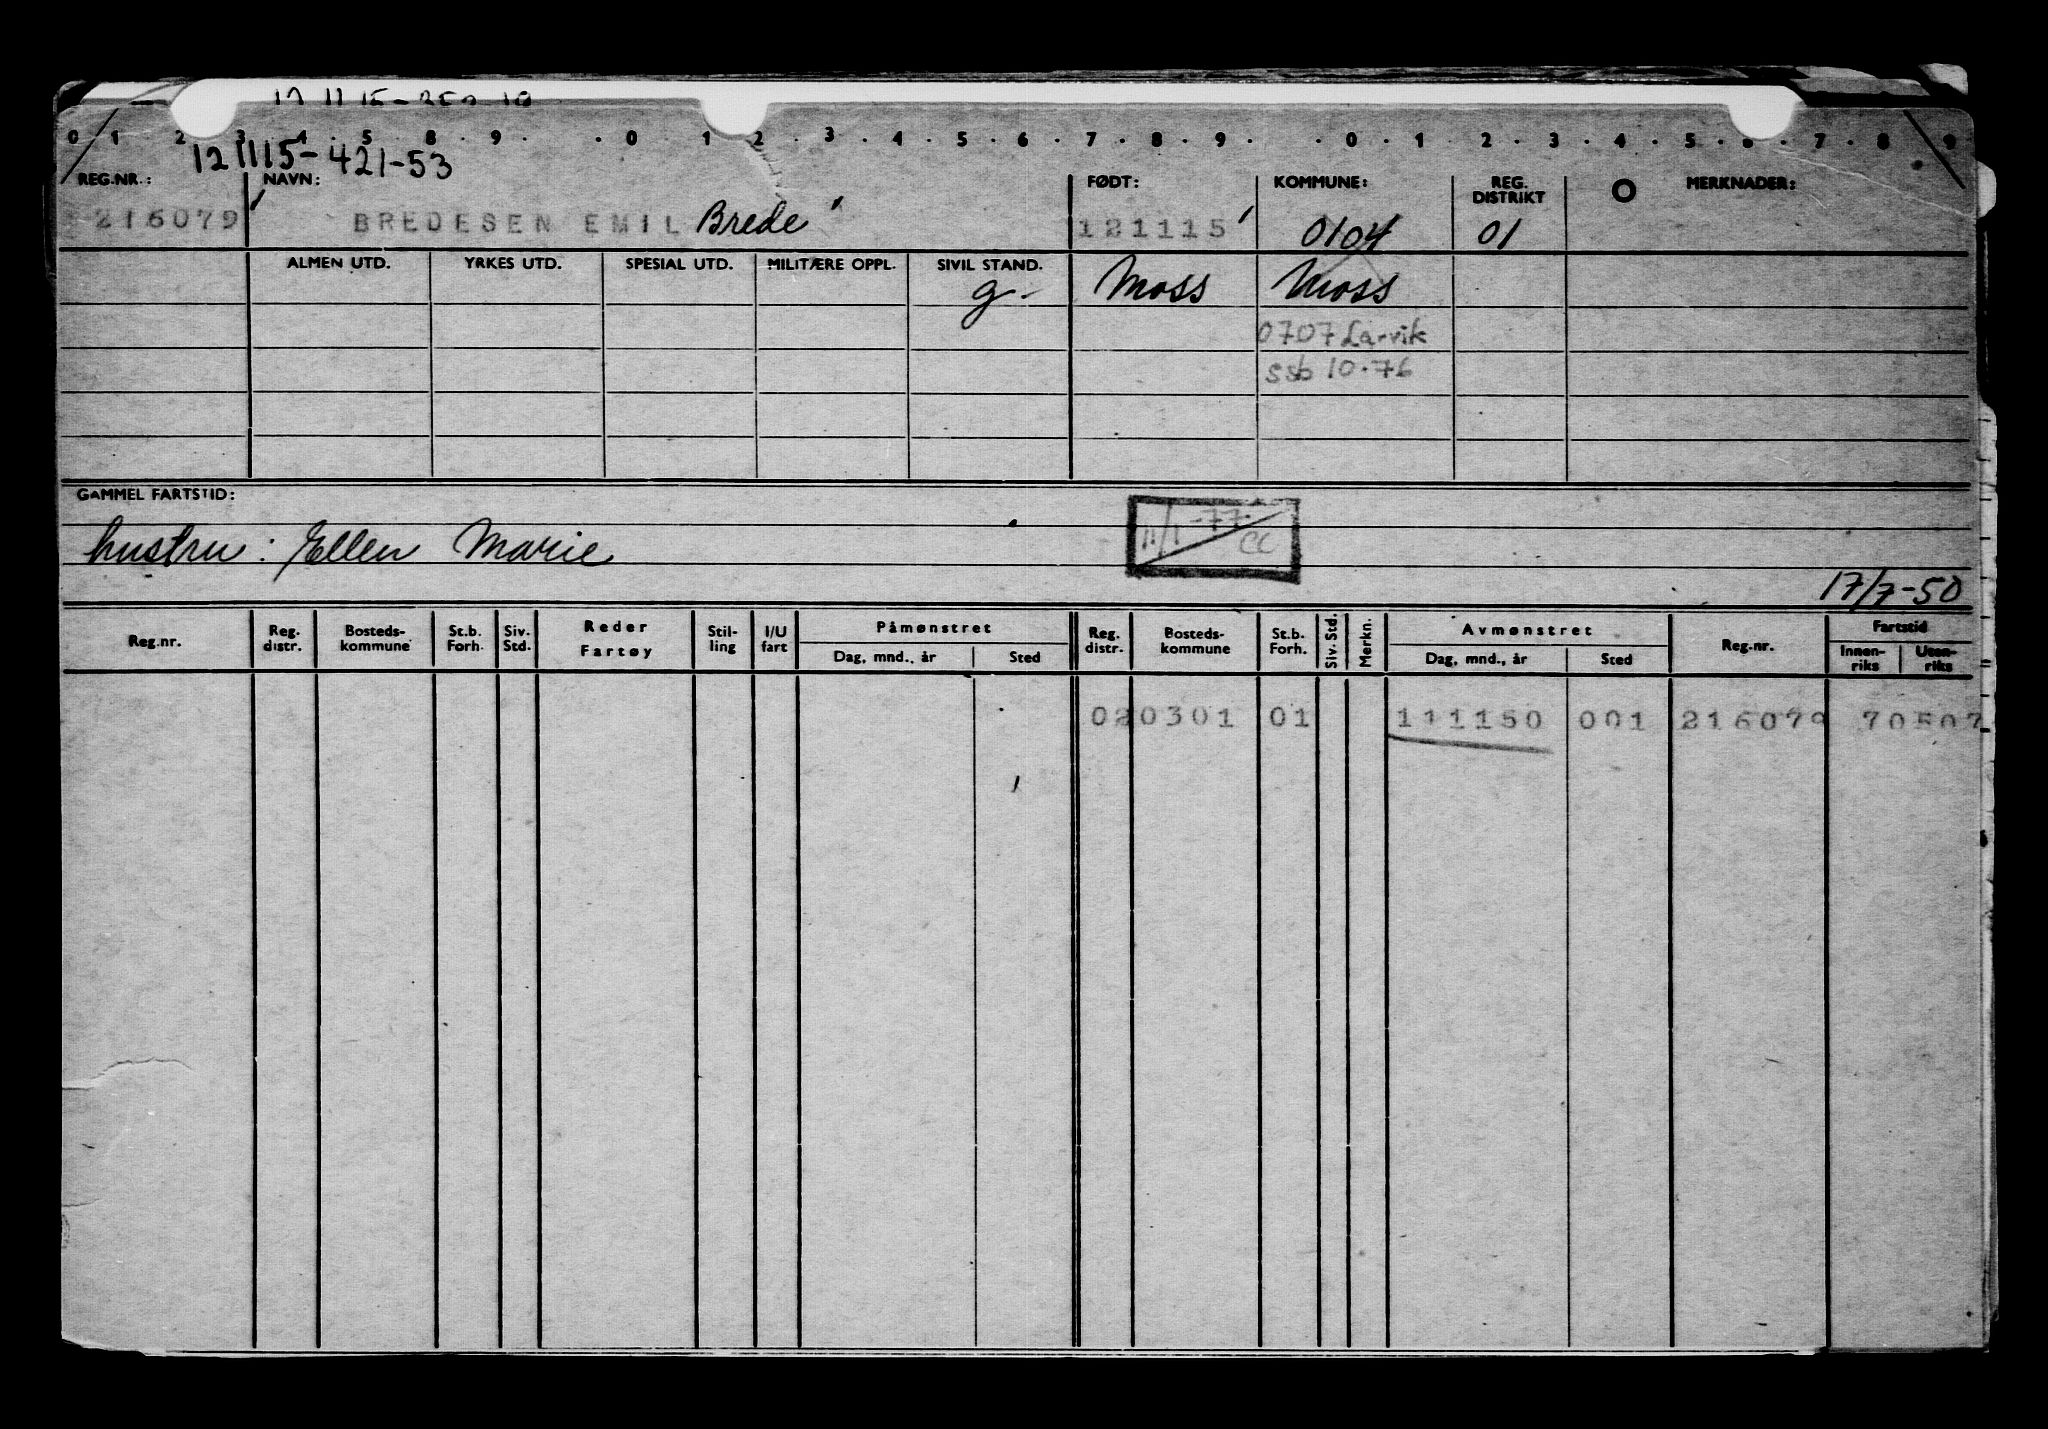 0 1 2 3 4 5 8 9 0 1 2 3 4 5 6 7 8 9 0 1 2 3 4 5 6 7 8 9
121115-421-53
REG.NR.: NAVN: FØDT: KOMMUNE: REG. DISTRIKT MERKNADER:
216079 BREDESEN EMIL Brede 121115 0104 01
ALMEN UTD. YRKES UTD. SPESIAL UTD. MILITÆRE OPPL. SIVIL STAND.
g- Moss Moss
0707 Larvik
ssb 10.76
GAMMEL FARTSTID:
11/1 -77- CC
hustru: Ellen Marie
17/7-50
Reg.nr. Reg. distr. Bosteds-kommune St.b. Forh. Siv. Std. Reder Fartøy Stil-ling I/U fart Påmønstret Dag, mnd., år Sted Reg. distr. Bosteds-kommune St.b. Forh. Siv. Std. Merkn. Avmønstret Dag, mnd., år Sted Reg.nr. Fartstid Innen-riks Uten-riks
02 0301 01 111150 001 216079 70507